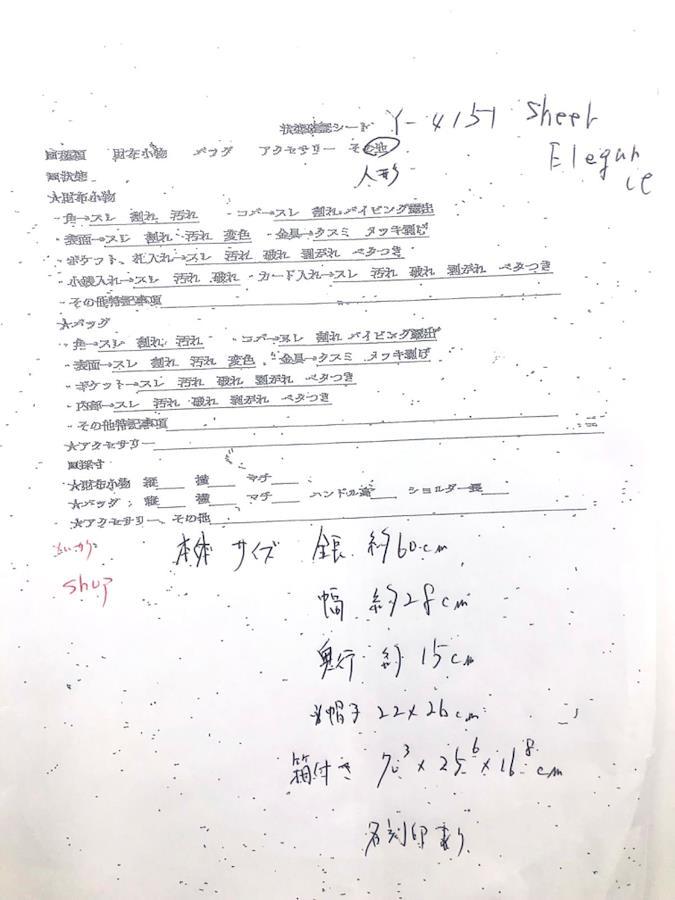 状態確認シート Y-4151 Sheer Elegance
□種類 財布小物 バッグ アクセサリー その他
人形
□状態
★財布小物
・角→スレ 割れ 汚れ ・コバ→スレ 割れ パイピング露出
・表面→スレ 割れ 汚れ 変色 ・金具→クスミ メッキ剥げ
・ポケット、札入れ→スレ 汚れ 破れ 剥がれ ベタつき
・小銭入れ→スレ 汚れ 破れ ・カード入れ→スレ 汚れ 破れ 剥がれ ベタつき
・その他特記事項
★バッグ
・角→スレ 割れ 汚れ ・コバ→スレ 割れ パイピング露出
・表面→スレ 割れ 汚れ 変色 ・金具→クスミ メッキ剥げ
・ポケット→スレ 汚れ 破れ 剥がれ ベタつき
・内部→スレ 汚れ 破れ 剥がれ ベタつき
・その他特記事項
★アクセサリー
□採寸
★財布小物 縦 横 マチ
★バッグ: 縦 横 マチ ハンドル高 ショルダー長
★アクセサリー、その他
本体サイズ 全長 約60cm
shop
幅 約28cm
奥行 約15cm
帽子 22×26cm
箱付き 70³×25⁶×16⁸cm
刻印あり